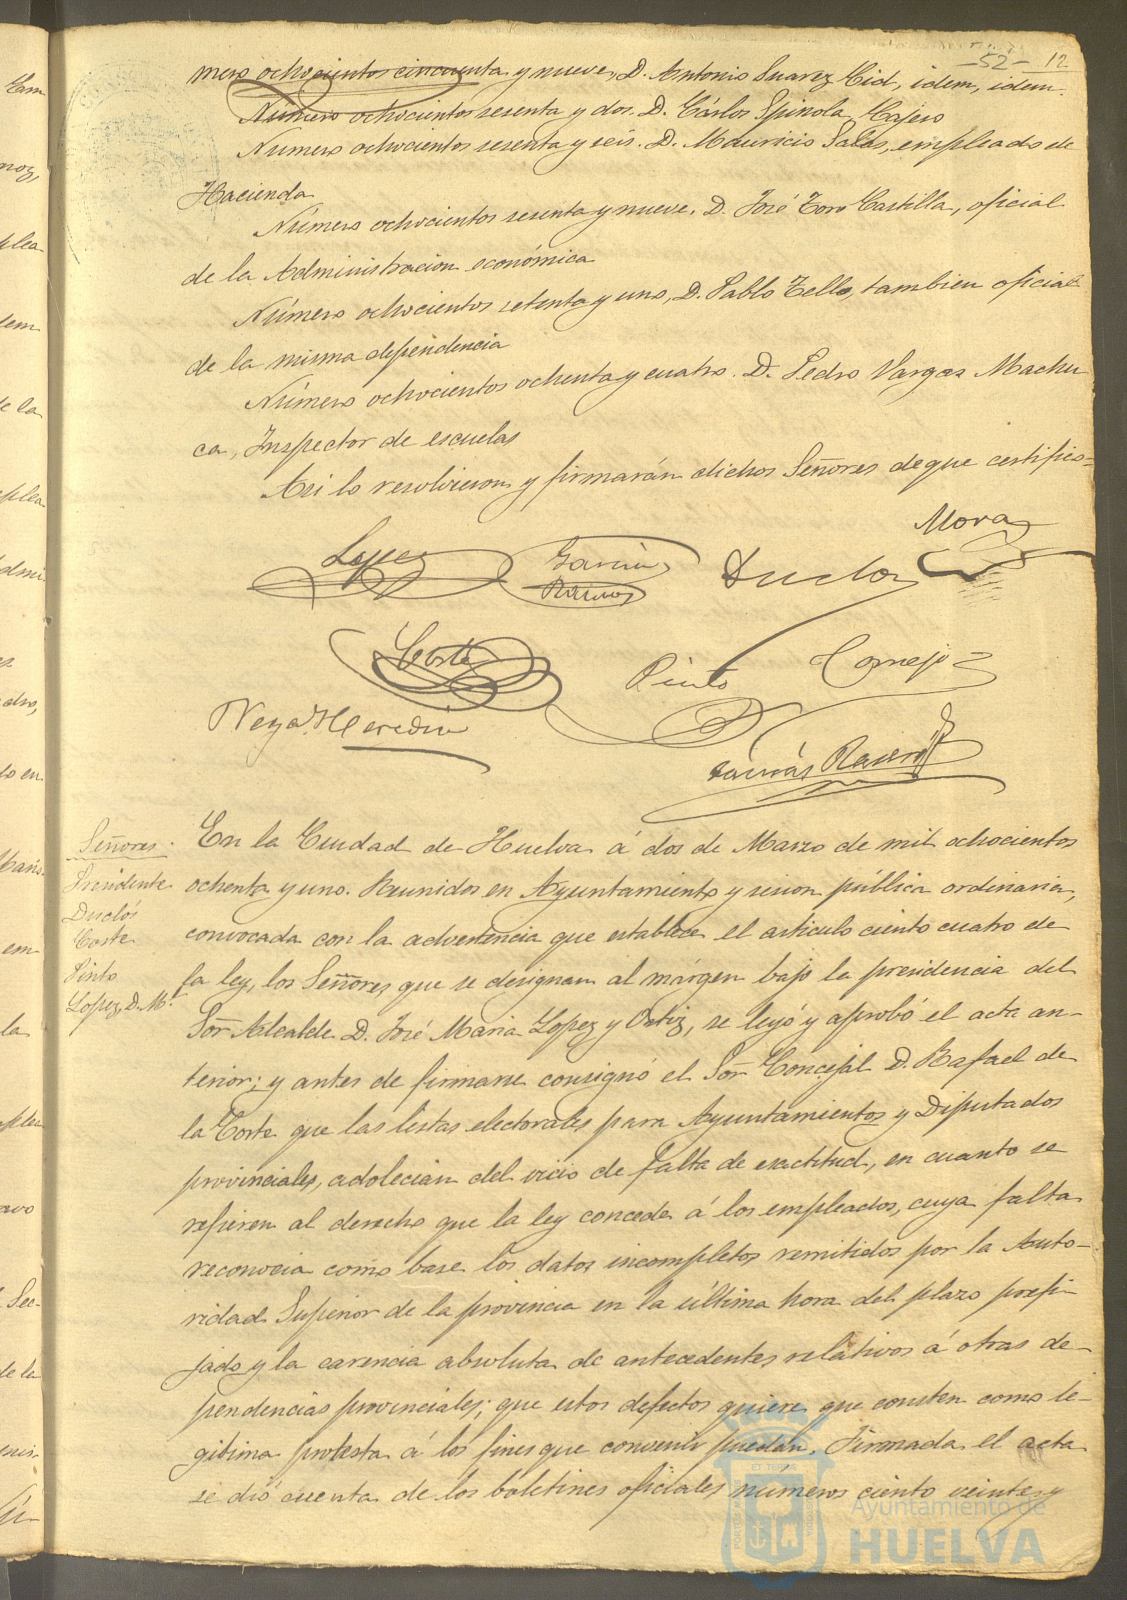 -52- 12
mero ochocientos cincuenta y nueve, D. Antonio Suarez Cid, idem, idem.
Número ochocientos sesenta y dos. D. Cárlos Spinola, Cajero
Número ochocientos sesenta y seis. D. Mauricio Salas, empleado de
Hacienda
Número ochocientos sesenta y nueve. D. José Toro Castilla, oficial
de la Administracion económica
Número ochocientos setenta y uno, D. Pablo Tello, tambien oficial
de la misma dependencia
Número ochocientos ochenta y cuatro. D. Pedro Vargas Machu
ca, Inspector de escuelas
Asi lo resolvieron y firmarán dichos Señores de que certifico=
Mora
Lopez
Garcia
Ramos
Duclos
Corte
Pinto
Cornejo
Vega Heredia
Tomás
Señores.
Presidente
Duclós
Corte
Pinto
López, D. M.
En la Ciudad de Huelva á dos de Marzo de mil ochocientos
ochenta y uno. Reunidos en Ayuntamiento y sesion pública ordinaria,
convocada con la advertencia que establece el articulo ciento cuatro de
la ley, los Señores que se designan al márgen bajo la presidencia del
Sor. Alcalde D. José Maria Lopez y Ortiz, se leyó y aprobó el acta an-
terior; y antes de firmarse consignó el Sor. Concejal D. Rafael de
la Corte que las listas electorales para Ayuntamientos y Diputados
provinciales, adolecian del vicio de falta de exactitud, en cuanto se
refieren al derecho que la ley concede á los empleados, cuya falta
reconocia como base los datos incompletos remitidos por la Auto-
ridad Superior de la provincia en la última hora del plazo prefi-
jado y la carencia absoluta de antecedentes relativos á otras de-
pendencias provinciales; que estos defectos quiere que consten como le-
gitima protesta á los fines que convenir puedan. Firmada el acta
se dió cuenta de los boletines oficiales números ciento veinte y
Ayuntamiento de
HUELVA